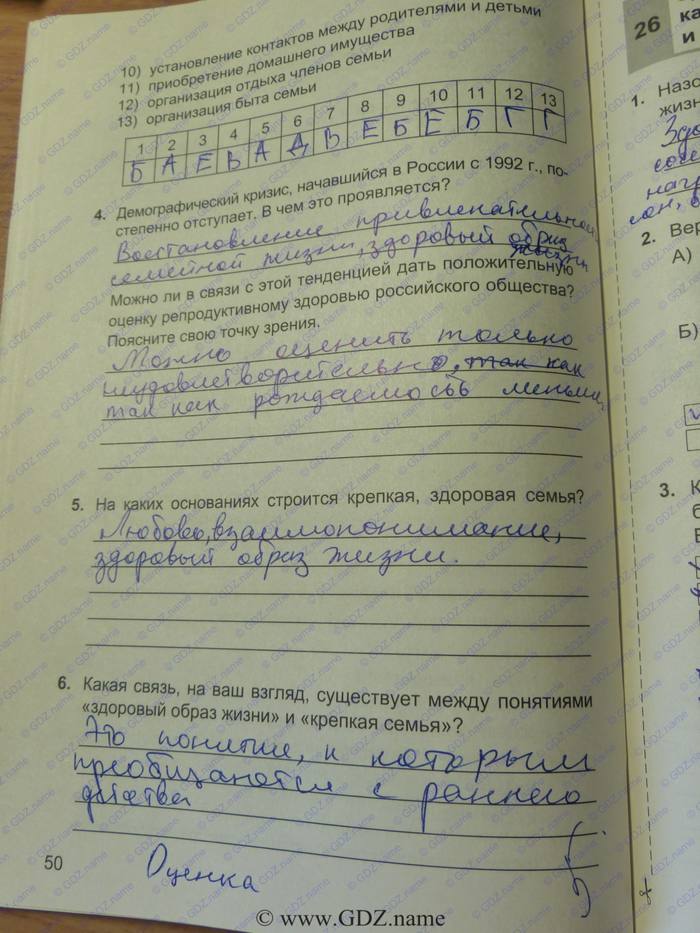 10) установление контактов между родителями и детьми
11) приобретение домашнего имущества
12) организация отдыха членов семьи
13) организация быта семьи
1 2 3 4 5 6 7 8 9 10 11 12 13
Б А Е В А Д В Е Б Е Б Г Г
4. Демографический кризис, начавшийся в России с 1992 г., по-
степенно отступает. В чем это проявляется?
Восстановление привлекательной
семейной жизни, здоровый образ
жизни
Можно ли в связи с этой тенденцией дать положительную
оценку репродуктивному здоровью российского общества?
Поясните свою точку зрения.
Можно оценить только
неудовлетворительно, так как
так как рождаемость меньше
5. На каких основаниях строится крепкая, здоровая семья?
Любовь, взаимопонимание,
здоровый образ жизни.
6. Какая связь, на ваш взгляд, существует между понятиями
«здоровый образ жизни» и «крепкая семья»?
Это понятие, к которым
преобщаются с раннего
детства
50
Оценка
© www.GDZ.name
26
ка
и
1. Назо
жизн
Здо
сон,
2. Вер
А)
Б)
3. К